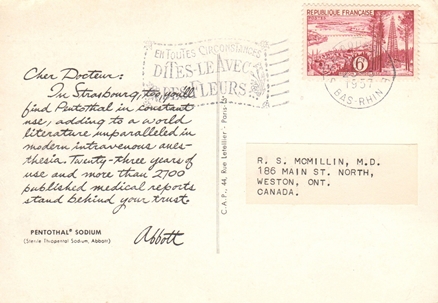 EN TOUTES CIRCONSTANCES
DITES-LE AVEC
FLEURS
REPUBLIQUE FRANÇAISE
6
1957
BAS-RHIN
Cher Docteur:
In Strasbourg, too, you'll
find Pentothal in constant
use, adding to a world
literature unparalleled in
modern intravenous anes-
thesia. Twenty-three years of
use and more than 2700
published medical reports
stand behind your trust.
PENTOTHAL® SODIUM
(Sterile Thiopental Sodium, Abbott)
Abbott
C.A.P., 44, Rue Letellier - Paris
R. S. MCMILLIN, M.D.
186 MAIN ST. NORTH,
WESTON, ONT.
CANADA.